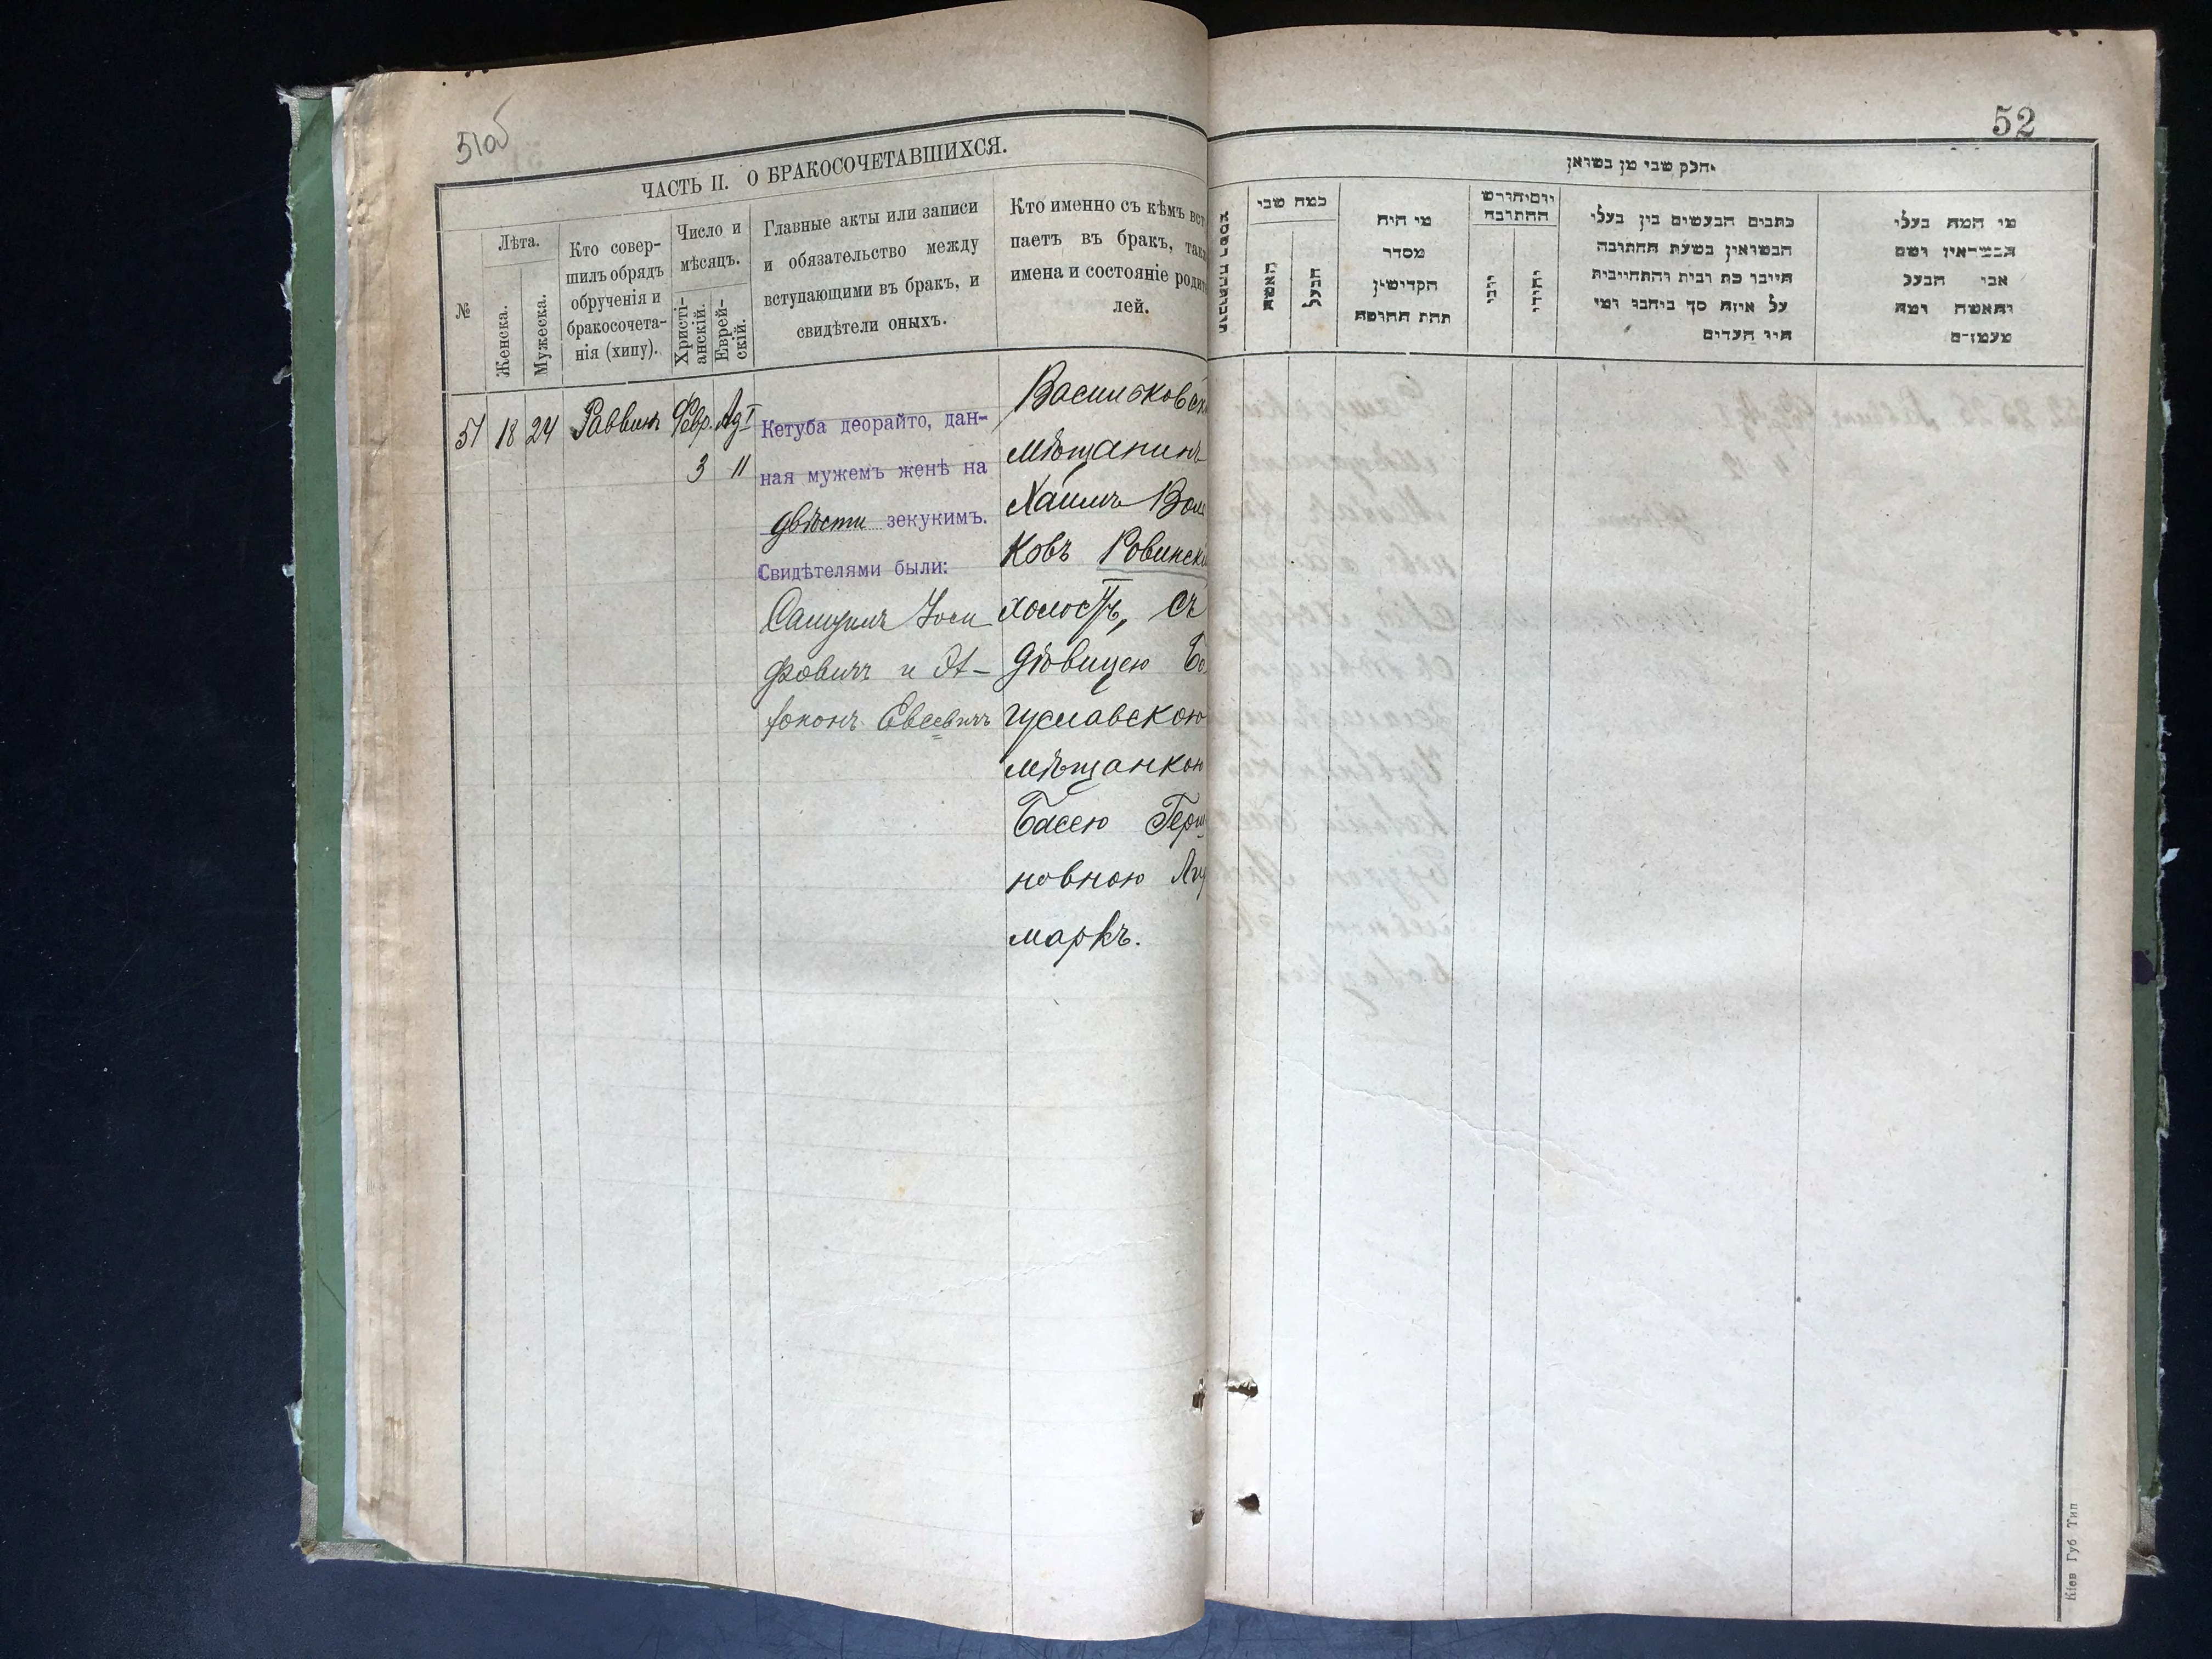 51об
ЧАСТЬ II. О БРАКОСОЧЕТАВШИХСЯ.
№
Лѣта.
Женска.
Мужеска.
Кто совер-
шилъ обрядъ
обрученія и
бракосочета-
нія (хипу).
Число и
мѣсяцъ.
Христі-
анскій.
Еврей-
скій.
Главные акты или записи
и обязательство между
вступающими въ бракъ, и
свидѣтели оныхъ.
Кто именно съ кѣмъ вст
паетъ въ бракъ, такж
имена и состояніе родит
лей.
51 18 24 Раввинъ Февр. Ад I
3 11
Кетуба деорайто, дан-
ная мужемъ женѣ на
двѣсти зекукимъ.
Свидѣтелями были:
Самуилъ Іоси
фовичъ и
Евсевичъ
Васильковск
мѣщанинъ
Хаимъ Вол
ковъ Ровинск
холостъ, съ
дѣвицею Бо
гуславскою
мѣщанкою
Басею Герш
новною Яр
маркъ.
52
חלק שבי מן בשואן
כמה שבי
האשה
הבעל
מי היה
מסדר
הקדישין
תחת החופה
יום וחודש
החתובה
יויבי
יהודי
כתבים הבעשים בין בעלי
הבשואין בשעת החתובה
על איזה סך ביחבו ומי
היו העדים
מי המה בעלי
אבי הבעל
והאשה ומה
Кіев Губ Тип